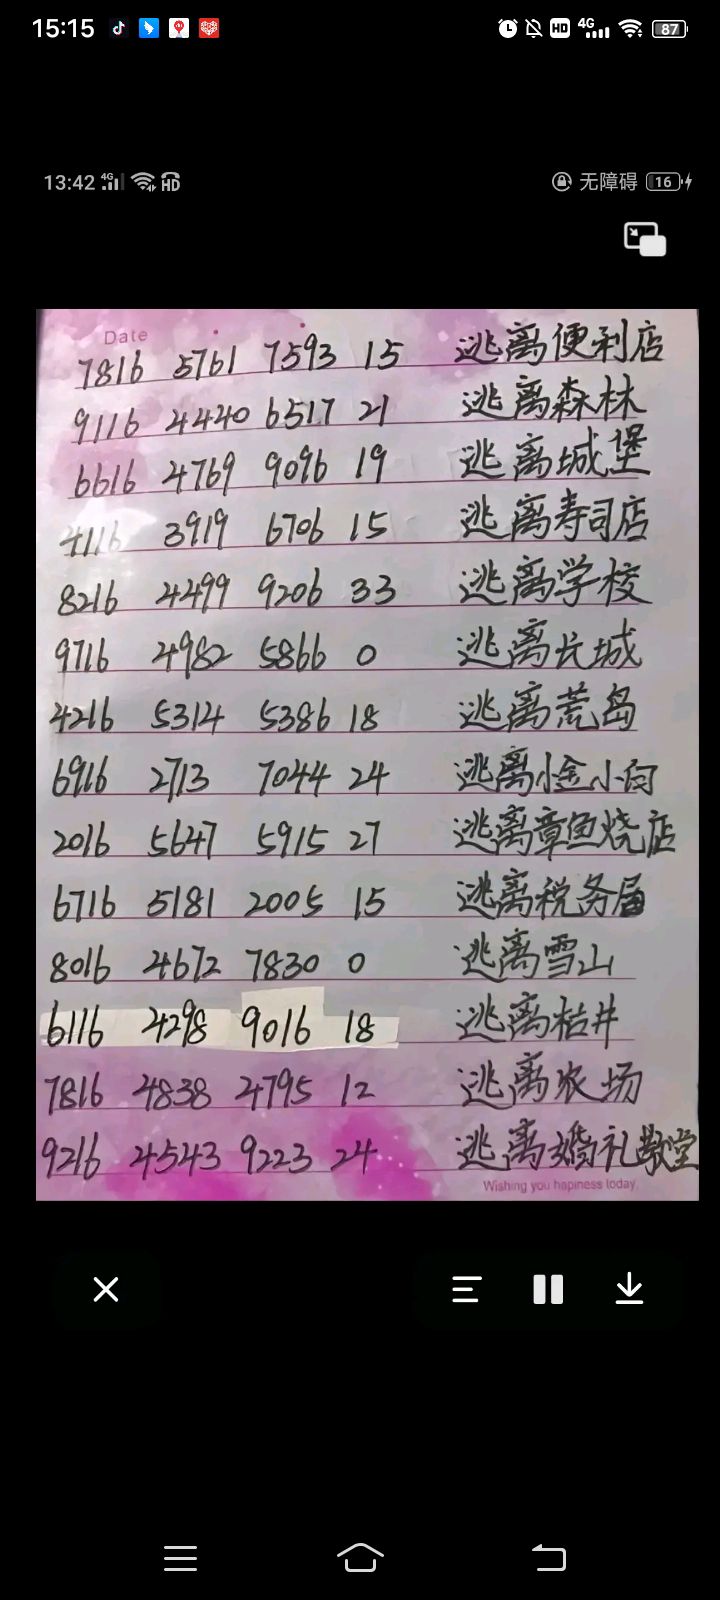 15:15 HD 4G 87
13:42 4G HD 无障碍 16
Date
7816 5761 7593 15 逃离便利店
9116 4440 6517 21 逃离森林
6616 4769 9096 19 逃离城堡
4116 3919 6706 15 逃离寿司店
8216 4499 9206 33 逃离学校
9716 4982 5866 0 逃离长城
4216 5314 5386 18 逃离荒岛
6916 2713 7044 24 逃离小金小向
2016 5647 5915 27 逃离章鱼烧店
6716 5181 2005 15 逃离税务届
8016 4672 7830 0 逃离雪山
6116 4298 9016 18 逃离枯井
7816 4838 4795 12 逃离农场
9216 4543 9223 24 逃离婚礼教堂
Wishing you hapiness today.